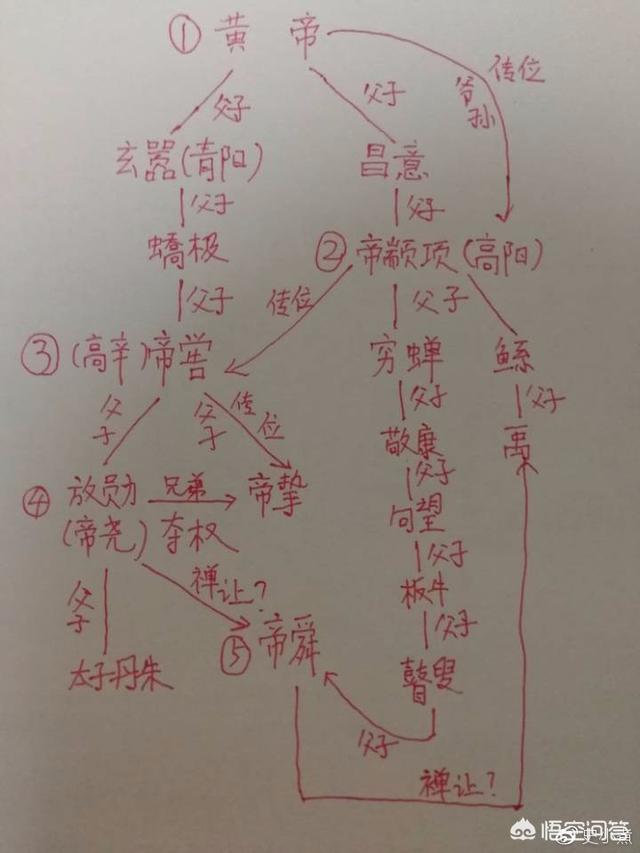 ① 黄 帝
传位
爷孙
父子
父子
玄嚣(青阳)
昌意
父子
父子
蟜极
② 帝颛顼(高阳)
父子
传位
父子
③(高辛)帝喾
穷蝉
鲧
父子
父子
传位
父子
父子
敬康
禹
④ 放勋
兄弟
帝挚
父子
(帝尧)
夺权
句望
禅让?
父子
父子
桥牛
⑤ 帝舜
父子
太子丹朱
瞽叟
父子
禅让?
悟空问答